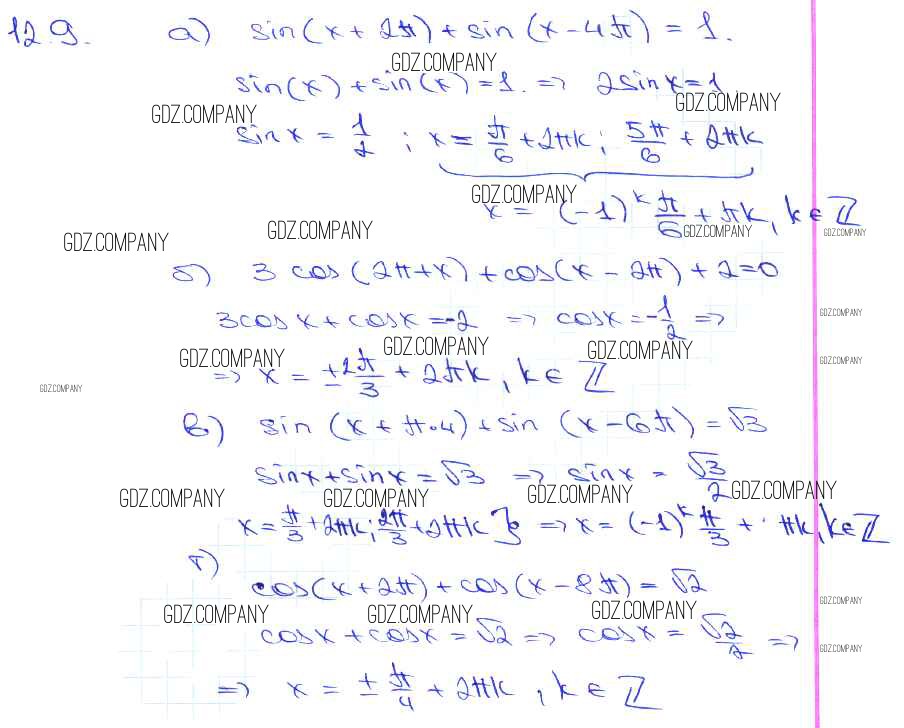 12.9. а) sin(x + 2π) + sin(x − 4π) = 1.
GDZ.COMPANY
sin(x) + sin(x) = 1. => 2sinx = 1
GDZ.COMPANY GDZ.COMPANY
sinx = 1/2 ; x = π/6 + 2πk; 5π/6 + 2πk
GDZ.COMPANY
x = (-1)^k π/6 + πk, k ∈ ℤ
GDZ.COMPANY GDZ.COMPANY GDZ.COMPANY GDZ.COMPANY
б) 3 cos(2π+x) + cos(x − 2π) + 2 = 0
GDZ.COMPANY
3cosx + cosx = -2 => cosx = -1/2 =>
GDZ.COMPANY GDZ.COMPANY GDZ.COMPANY GDZ.COMPANY
=> x = ± 2π/3 + 2πk, k ∈ ℤ
GDZ.COMPANY
в) sin (x + π·4) + sin (x − 6π) = √3
sinx + sinx = √3 => sinx = √3/2
GDZ.COMPANY GDZ.COMPANY GDZ.COMPANY GDZ.COMPANY
x = π/3 + 2πk; 2π/3 + 2πk } => x = (-1)^k π/3 + πk, k ∈ ℤ
г)
cos(x + 2π) + cos(x − 8π) = √2
GDZ.COMPANY GDZ.COMPANY GDZ.COMPANY GDZ.COMPANY
cosx + cosx = √2 => cosx = √2/2 =>
GDZ.COMPANY
=> x = ± π/4 + 2πk, k ∈ ℤ